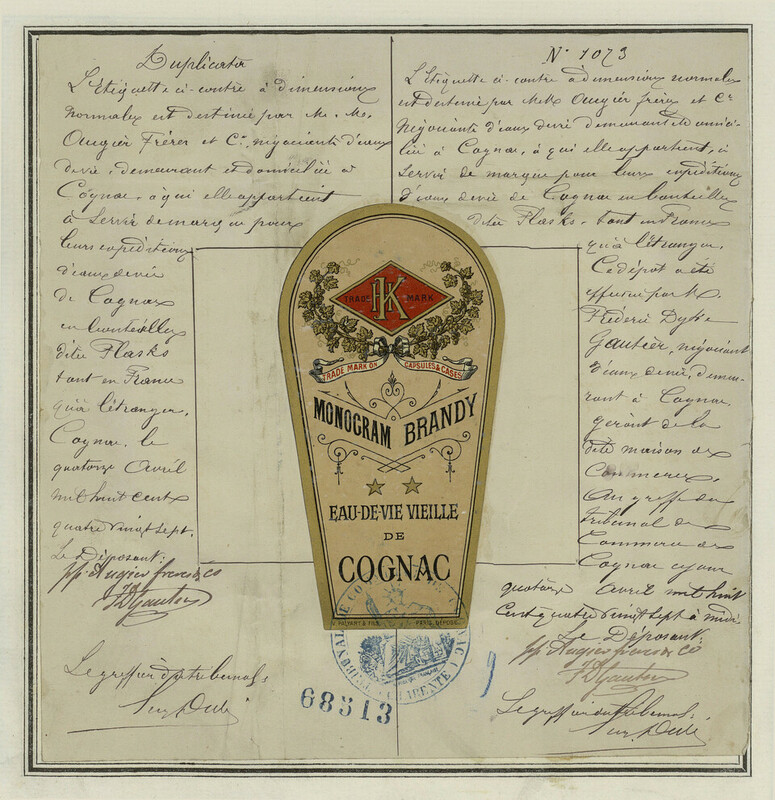 Duplicata
L'étiquette ci-contre à dimensions
normales est destinée par M. M.
Augier Frères et Cie, négociants d'eaux
de vie, demeurant et domiciliés à
Cognac, à qui elle appartient
à servir de marque pour
leurs expéditions
d'eaux de vie
de Cognac
en bouteilles
dites Flasks
tant en France
qu'à l'étranger.
Cognac, le
quatorze Avril
mil huit cent
quatre vingt sept.
Le Déposant:
pp. Augier frères & Co
F D Gautier
Le greffier du tribunal:
N° 1073
L'étiquette ci-contre à dimensions normales
est destinée par MM. Augier frères et Cie
Négociants d'eaux de vie demeurant et domici-
liés à Cognac, à qui elle appartient, à
servir de marque pour leurs expéditions
d'eaux de vie de Cognac en bouteilles
dites Flasks, tant en France
qu'à l'étranger.
Ce dépôt a été
effectué par M.
Fréderic
Gautier, négociant
d'eaux de vie, demeu-
rant à Cognac
gérant de la
dite maison de
Commerce,
Au greffe du
tribunal de
Commerce de
Cognac ce jour
quatorze Avril mil huit
cent quatre vingt sept à midi
Le Déposant:
pp. Augier frères & Co
F D Gautier
Le greffier du tribunal:
TRADE AK MARK
TRADE MARK ON CAPSULES & CASES
MONOGRAM BRANDY
EAU-DE-VIE VIEILLE
DE
COGNAC
PARIS. DÉPOSÉ
68513